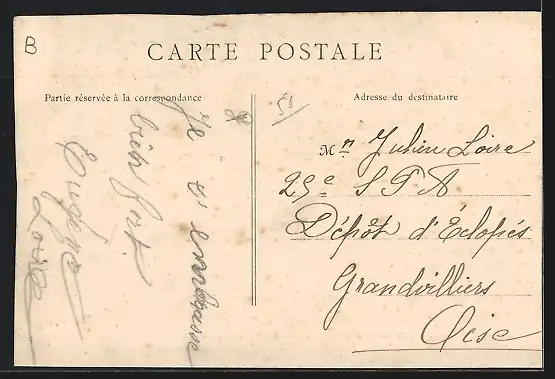 B
CARTE POSTALE
Partie réservée à la correspondance
Je t'embrasse
bien fort
Eugène
Loire
Adresse du destinataire
Mr Julien Loire
29e S P A
Dépôt d'Éclopés
Grandvilliers
Oise